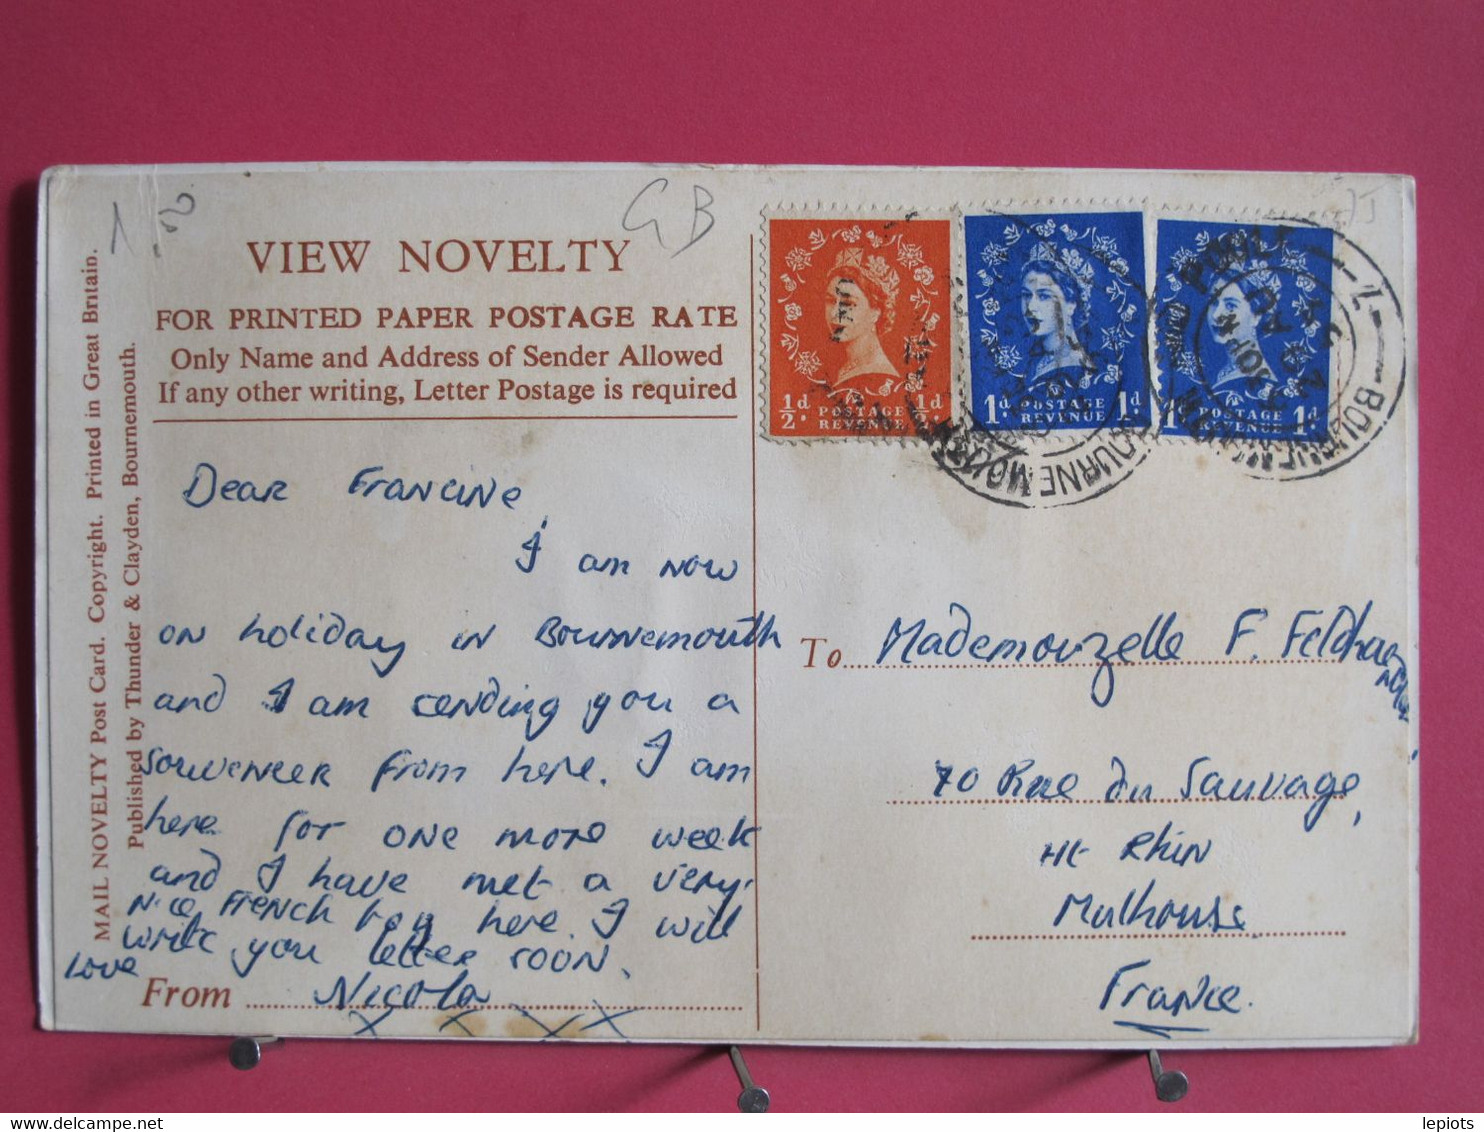 1.50
GB
VIEW NOVELTY
FOR PRINTED PAPER POSTAGE RATE
Only Name and Address of Sender Allowed
If any other writing, Letter Postage is required
MAIL NOVELTY Post Card. Copyright. Printed in Great Britain.
Published by Thunder & Clayden, Bournemouth.
Dear Francine,
I am now
on holiday in Bournemouth
and I am sending you a
souveneer from here. I am
here for one more week
and I have met a very
nice French boy here. I will
write you letter soon.
Love
From Nicola
x x x x
½d. POSTAGE REVENUE ½d.
1d. POSTAGE REVENUE 1d.
1d. POSTAGE REVENUE 1d.
BOURNEMOUTH
BOURNEMOUTH
To Mademouzelle F. Feldhac
70 Rue du Sauvage,
Ht Rhin
Mulhouse
France.
lepiots
delcampe.net